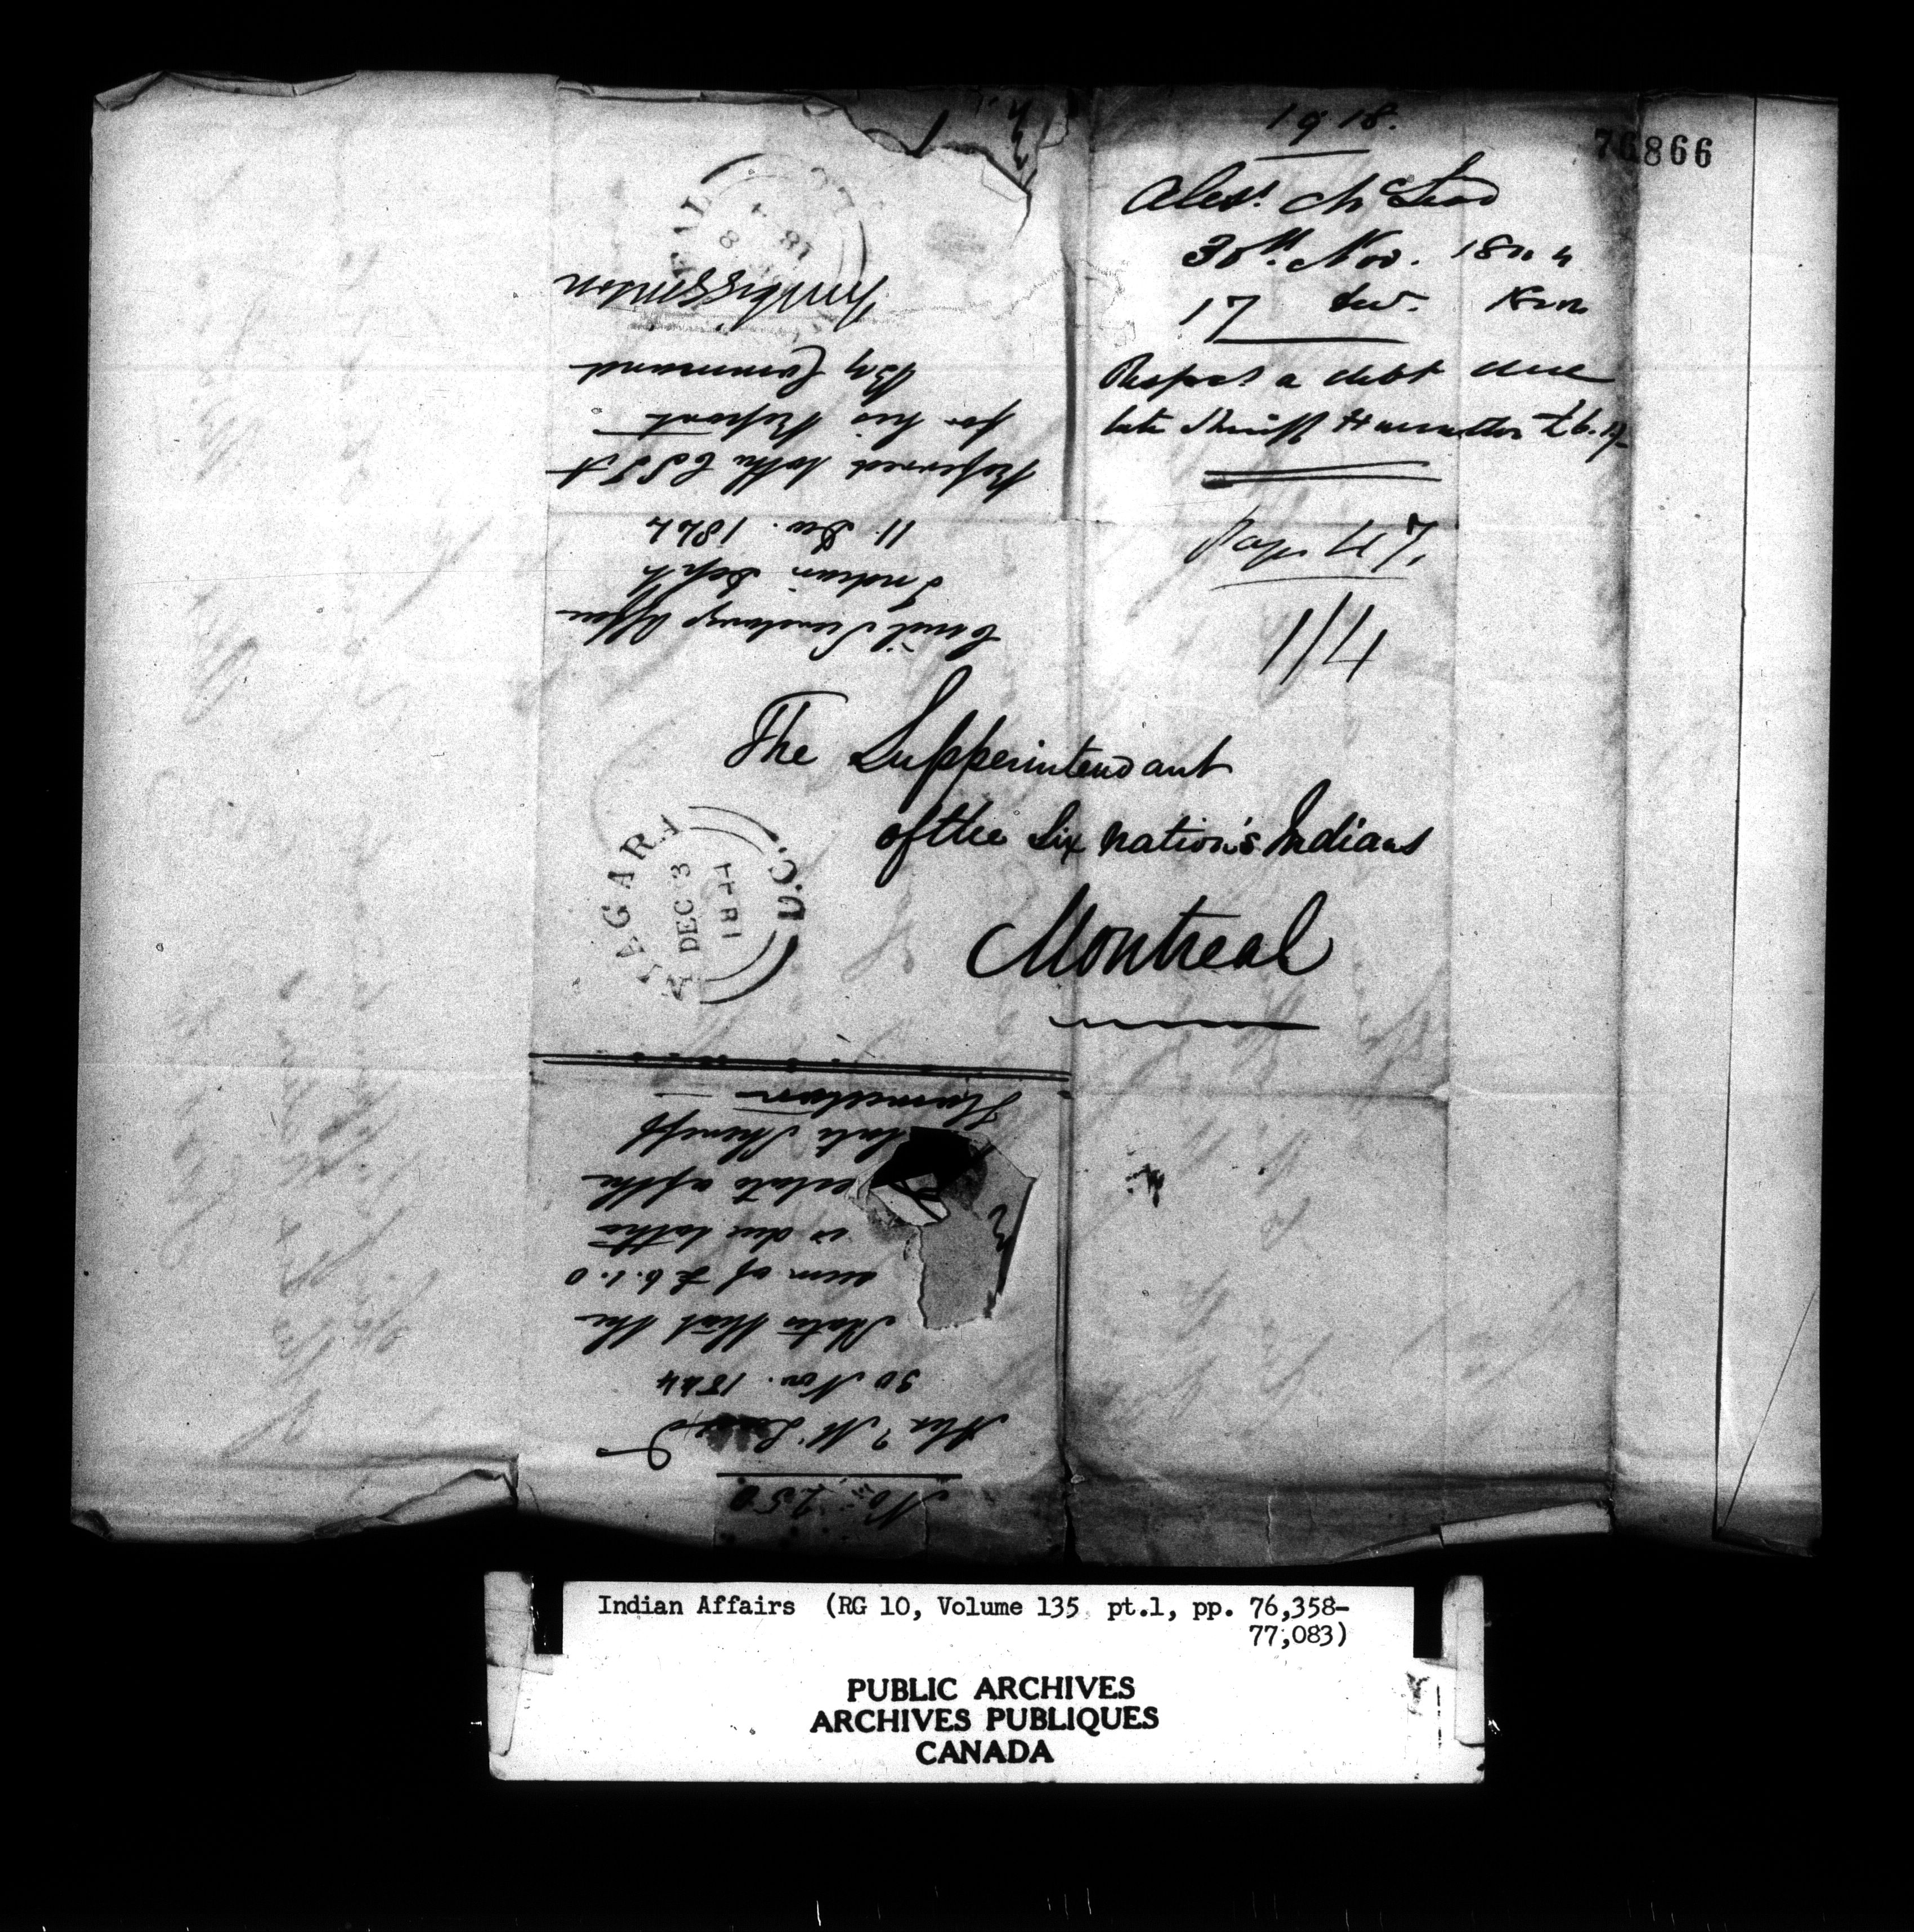 1918.
76866
Alexr. McLeod
30th. Nov. 1844
17 Dec.
Respect a debt due
late Sheriff Hamilton £6.1/-
1/4
The Supperintendant
of the Six Nation's Indians
Montreal
NIAGARA
DEC 3
1844
U.C.
No. 250
Alexr McLeod
30 Nov. 1844
States that the
sum of £6.1.0
is due to the
estate of the
late Sheriff
Hamilton
Civil Secretarys Office
Indian Dept
11 Dec. 1844
Referred to the CSIA
for his Report
By Command
JM Higginson
Indian Affairs (RG 10, Volume 135 pt.1, pp. 76,358-
77,083)
PUBLIC ARCHIVES
ARCHIVES PUBLIQUES
CANADA